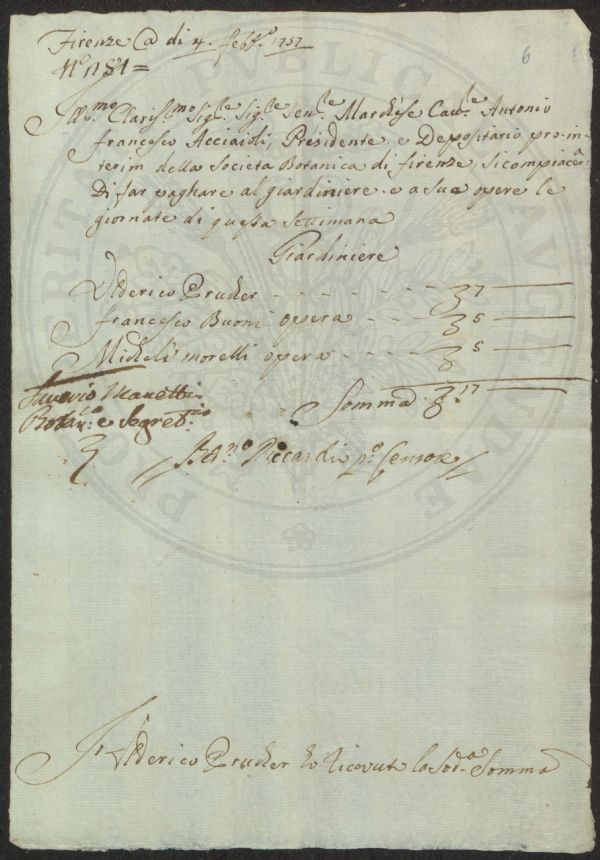 Firenze @ di 4. febb.º 1757
N.º 1181=
6
Ill.mo Clariss.mo Sig.re Sig.re Sen.re Marchese Cav.re Antonio
francesco Acciaioli, Presidente e Depositario pro-in-
terim della Societa Botanica di firenze, si compiacerà
Di far paghare al giardiniere e a sue opere le
giornate di questa settimana
Giardiniere
Federico Prucker - - - - - - 7
francesco Buoni opera - - - - 5
Micheli morelli opera - - - - 5
Somma 17
Saverio Manetti
Botan.co e Segret.co
Bern.º Riccardi p.º Censore
Io Federico Prucker ho ricevuto la Sod.a Somma
PRO PUBLICA AUGENDAE